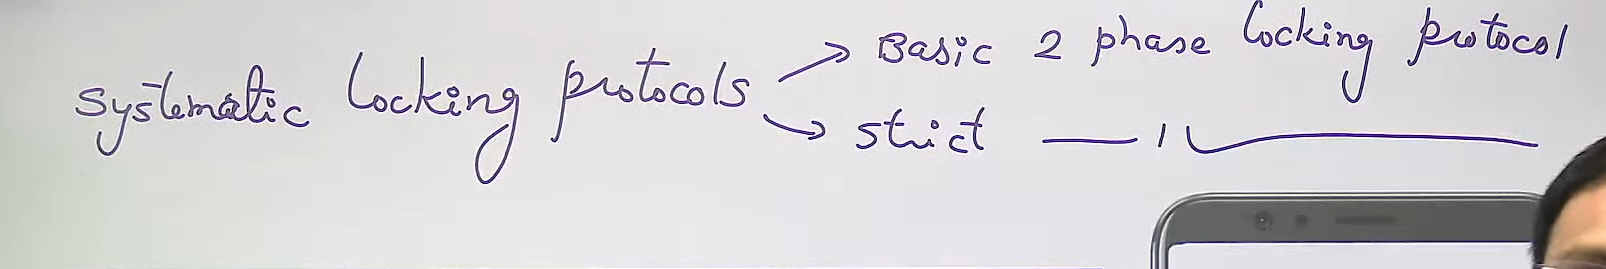 systematic locking protocols → Basic 2 phase locking protocol
→ strict — 〃 —